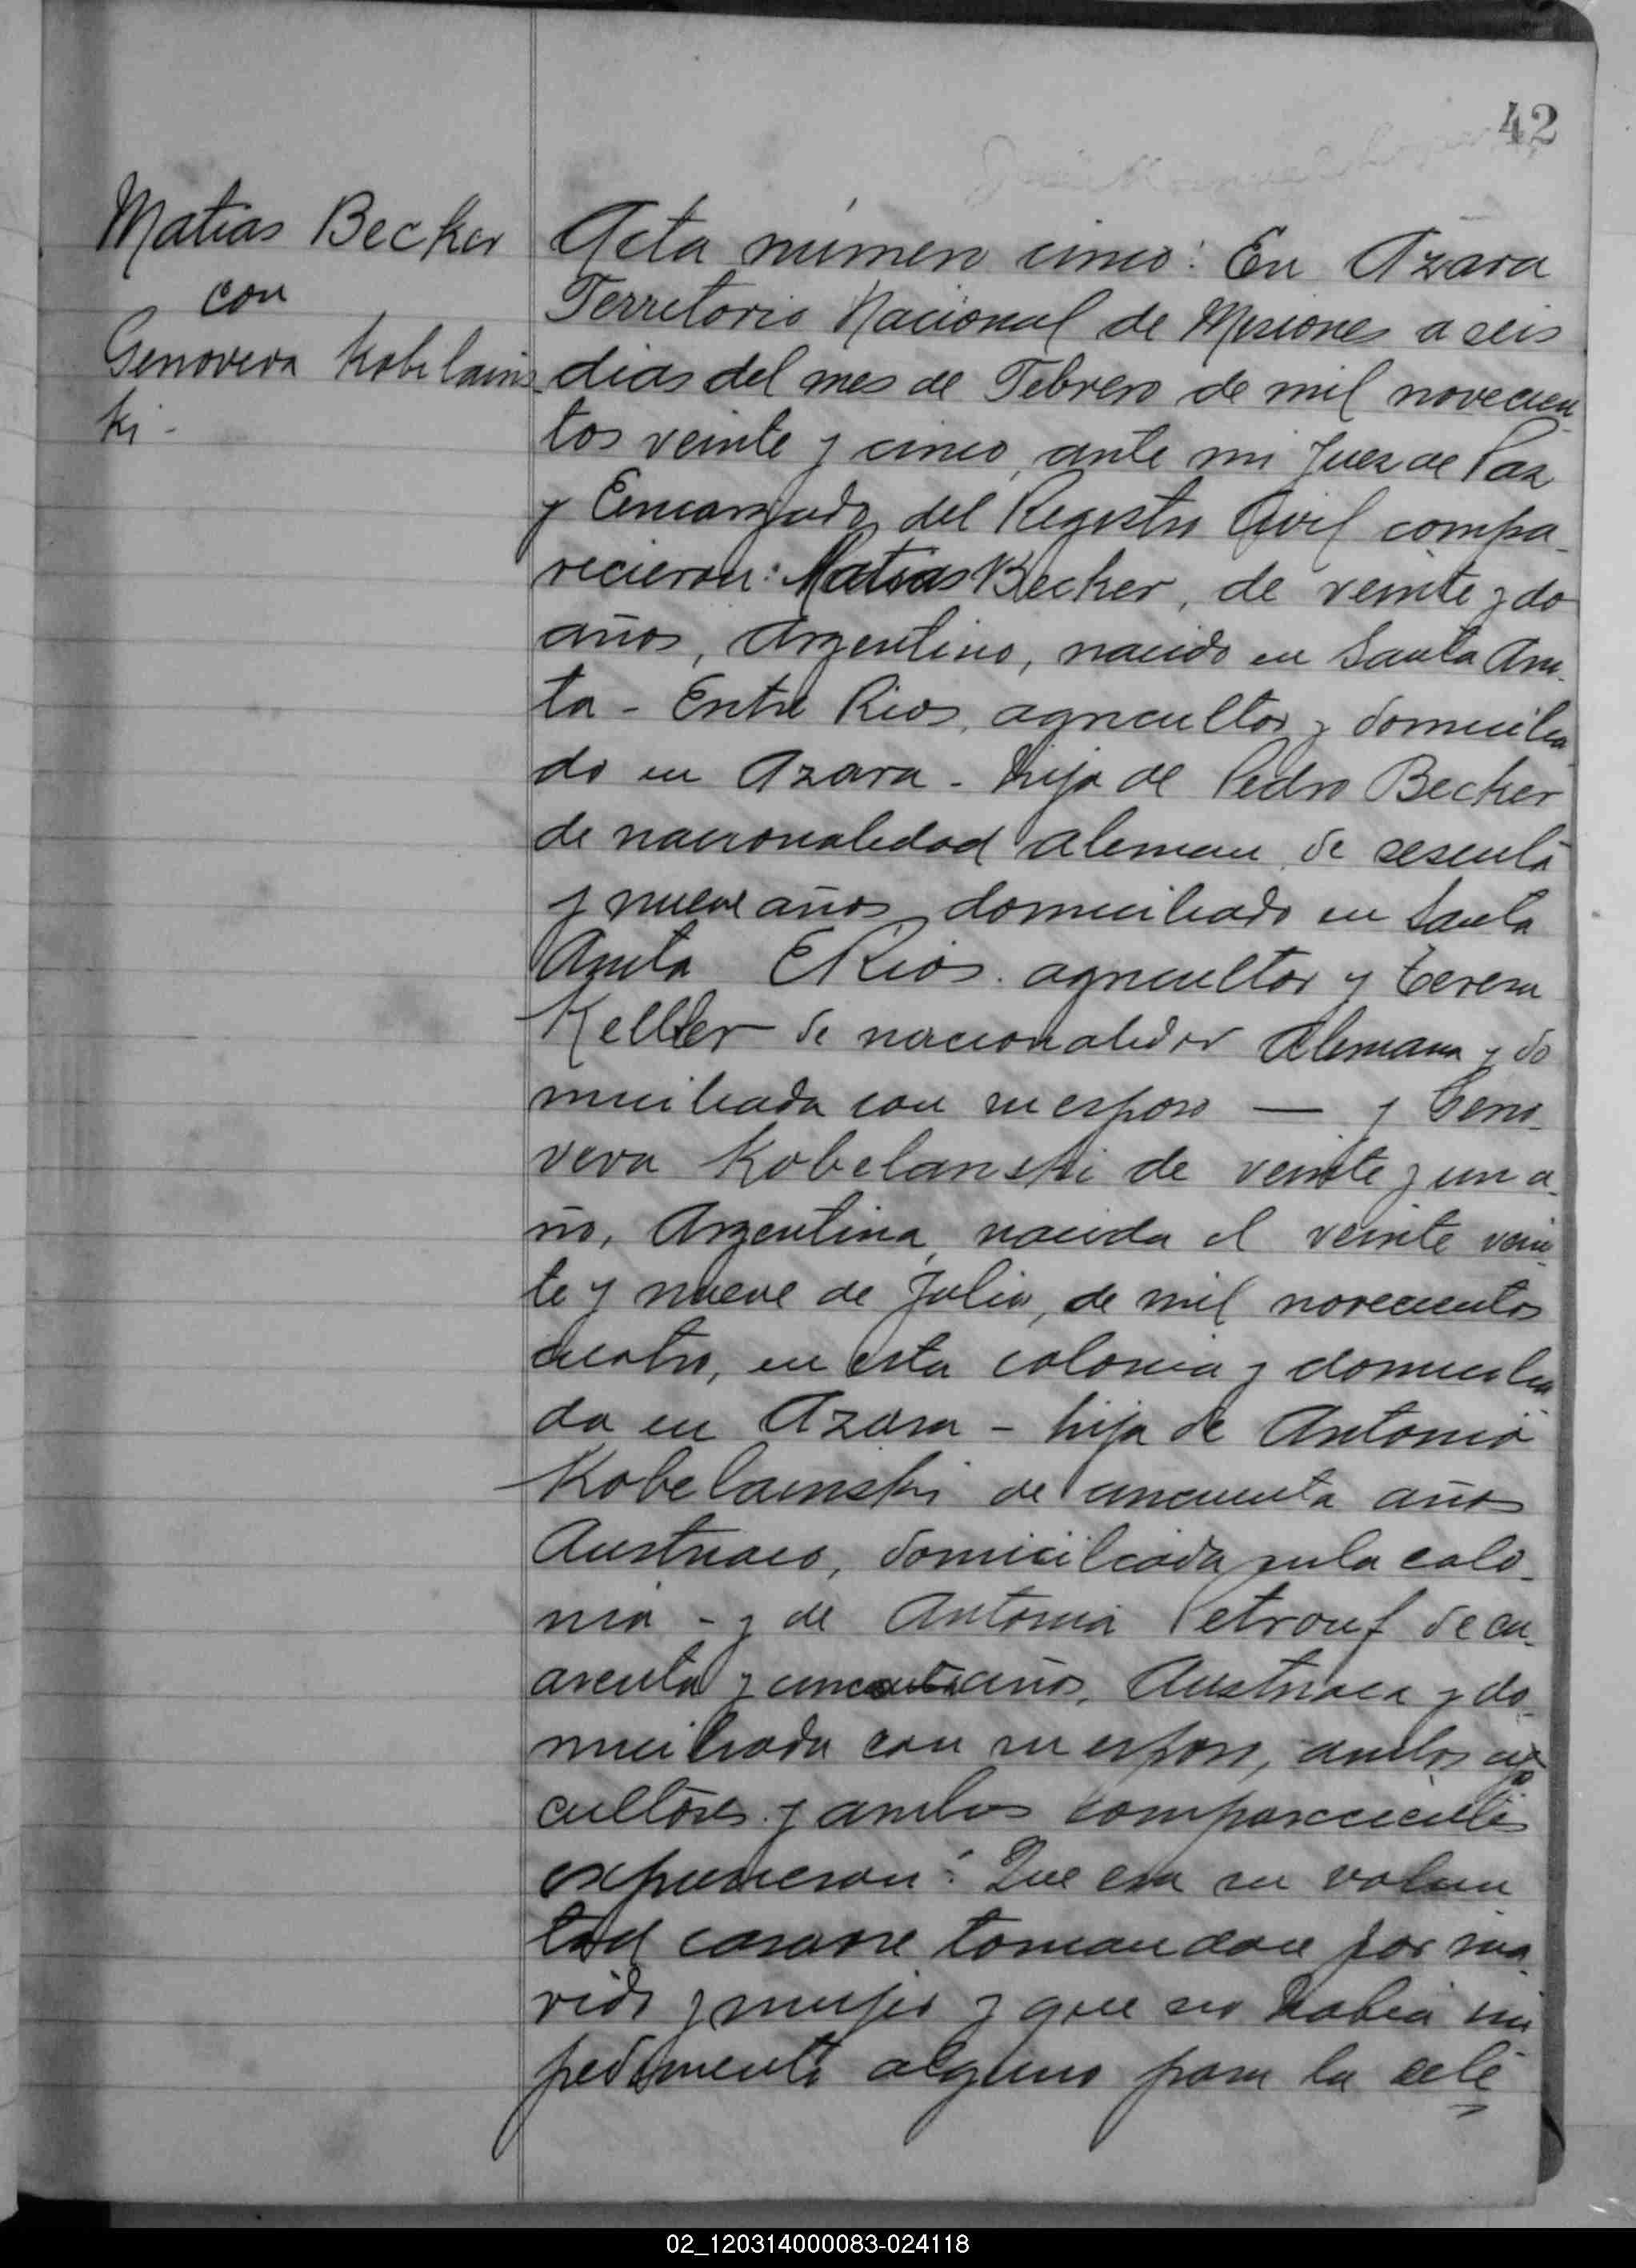 42
Matias Becker
con
Genoveva Kobelains
ki -
Acta número cinco: En Azara
Territorio Nacional de Misiones a seis
dias del mes de Febrero de mil novecien-
tos veinte y cinco, ante mi Juez de Paz
y Encargado del Registro Civil compa-
recieron: Matias Becker, de veinte y do
años, Argentino, nacido en Santa Ani-
ta - Entre Rios, agricultor y domicilia-
do en Azara - hijo de Pedro Becker
de nacionalidad aleman, de sesenta
y nueve años domiciliado en Santa
Anita E Rios. agricultor y Teresa
Keller de nacionalidad Alemana y do
miciliada con su esposo — y Geno-
veva Kobelanski de veinte y un a-
ño, Argentina, nacida el veinte vein-
te y nueve de Julio, de mil novecientos
cuatro, en esta colonia y domicilia
da en Azara - hija de Antonio
Kobelainski de cincuenta años
Austriaco, domiciliada en la colo-
nia - y de Antonia Petrouf de cu-
arenta y años, Austriaca y do-
miciliada con su esposo, ambos
cultores y ambos comparecientes
expusieron: Que era su volun
tad casarse tomandose por ma-
rido y mujer y que no habia im
pedimento alguno para la cele
02_120314000083-024118